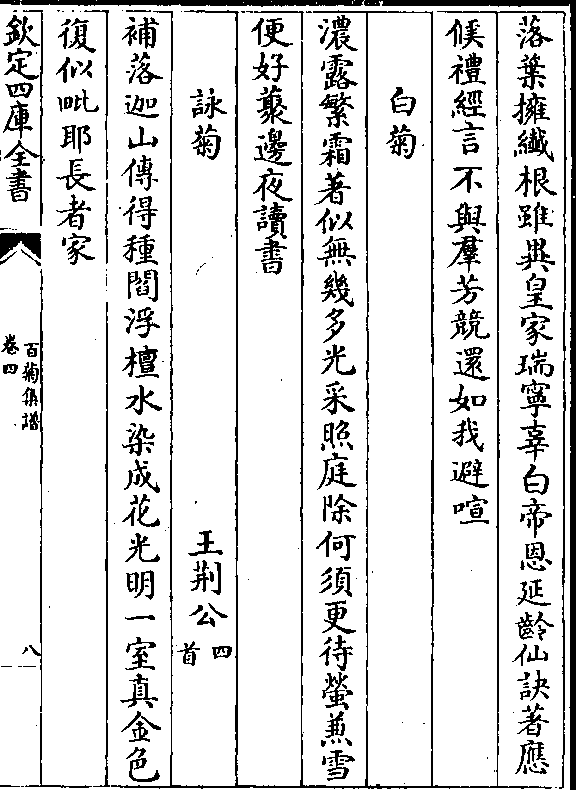 落葉擁纎根雖異皇家瑞寧辜白帝恩延齡仙訣著應
候禮經言不與羣芳競還如我避喧
白菊
濃露繁霜著似無幾多光采照庭除何須更待螢兼雪
便好藂邊夜讀書
詠菊 王荆公四首
補落迦山傳得種閻浮檀水染成花光明一室真金色
復似毗耶長者家
欽定四庫全書 百菊集譜 卷四 八